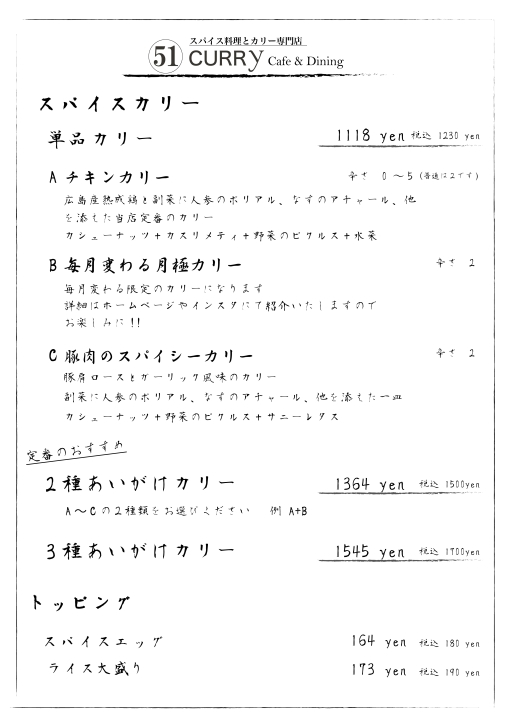 スパイス料理とカリー専門店
51 CURRY Cafe & Dining
スパイスカリー
単品カリー 1118 yen 税込 1230 yen
A チキンカリー 辛さ 0〜5 (普通は2です)
広島産熟成鶏と副菜に人参のポリアル、なすのアチャール、他
を添えた当店定番のカリー
カシューナッツ+カスリメティ+野菜のピクルス+水菜
B 毎月変わる月極カリー 辛さ 2
毎月変わる限定のカリーになります
詳細はホームページやインスタにて紹介いたしますので
お楽しみに!!
C 豚肉のスパイシーカリー 辛さ 2
豚肩ロースとガーリック風味のカリー
副菜に人参のポリアル、なすのアチャール、他を添えた一皿
カシューナッツ+野菜のピクルス+サニーレタス
定番のおすすめ
2種あいがけカリー 1364 yen 税込 1500yen
A〜Cの2種類をお選びください 例 A+B
3種あいがけカリー 1545 yen 税込 1700yen
トッピング
スパイスエッグ 164 yen 税込 180 yen
ライス大盛り 173 yen 税込 190 yen